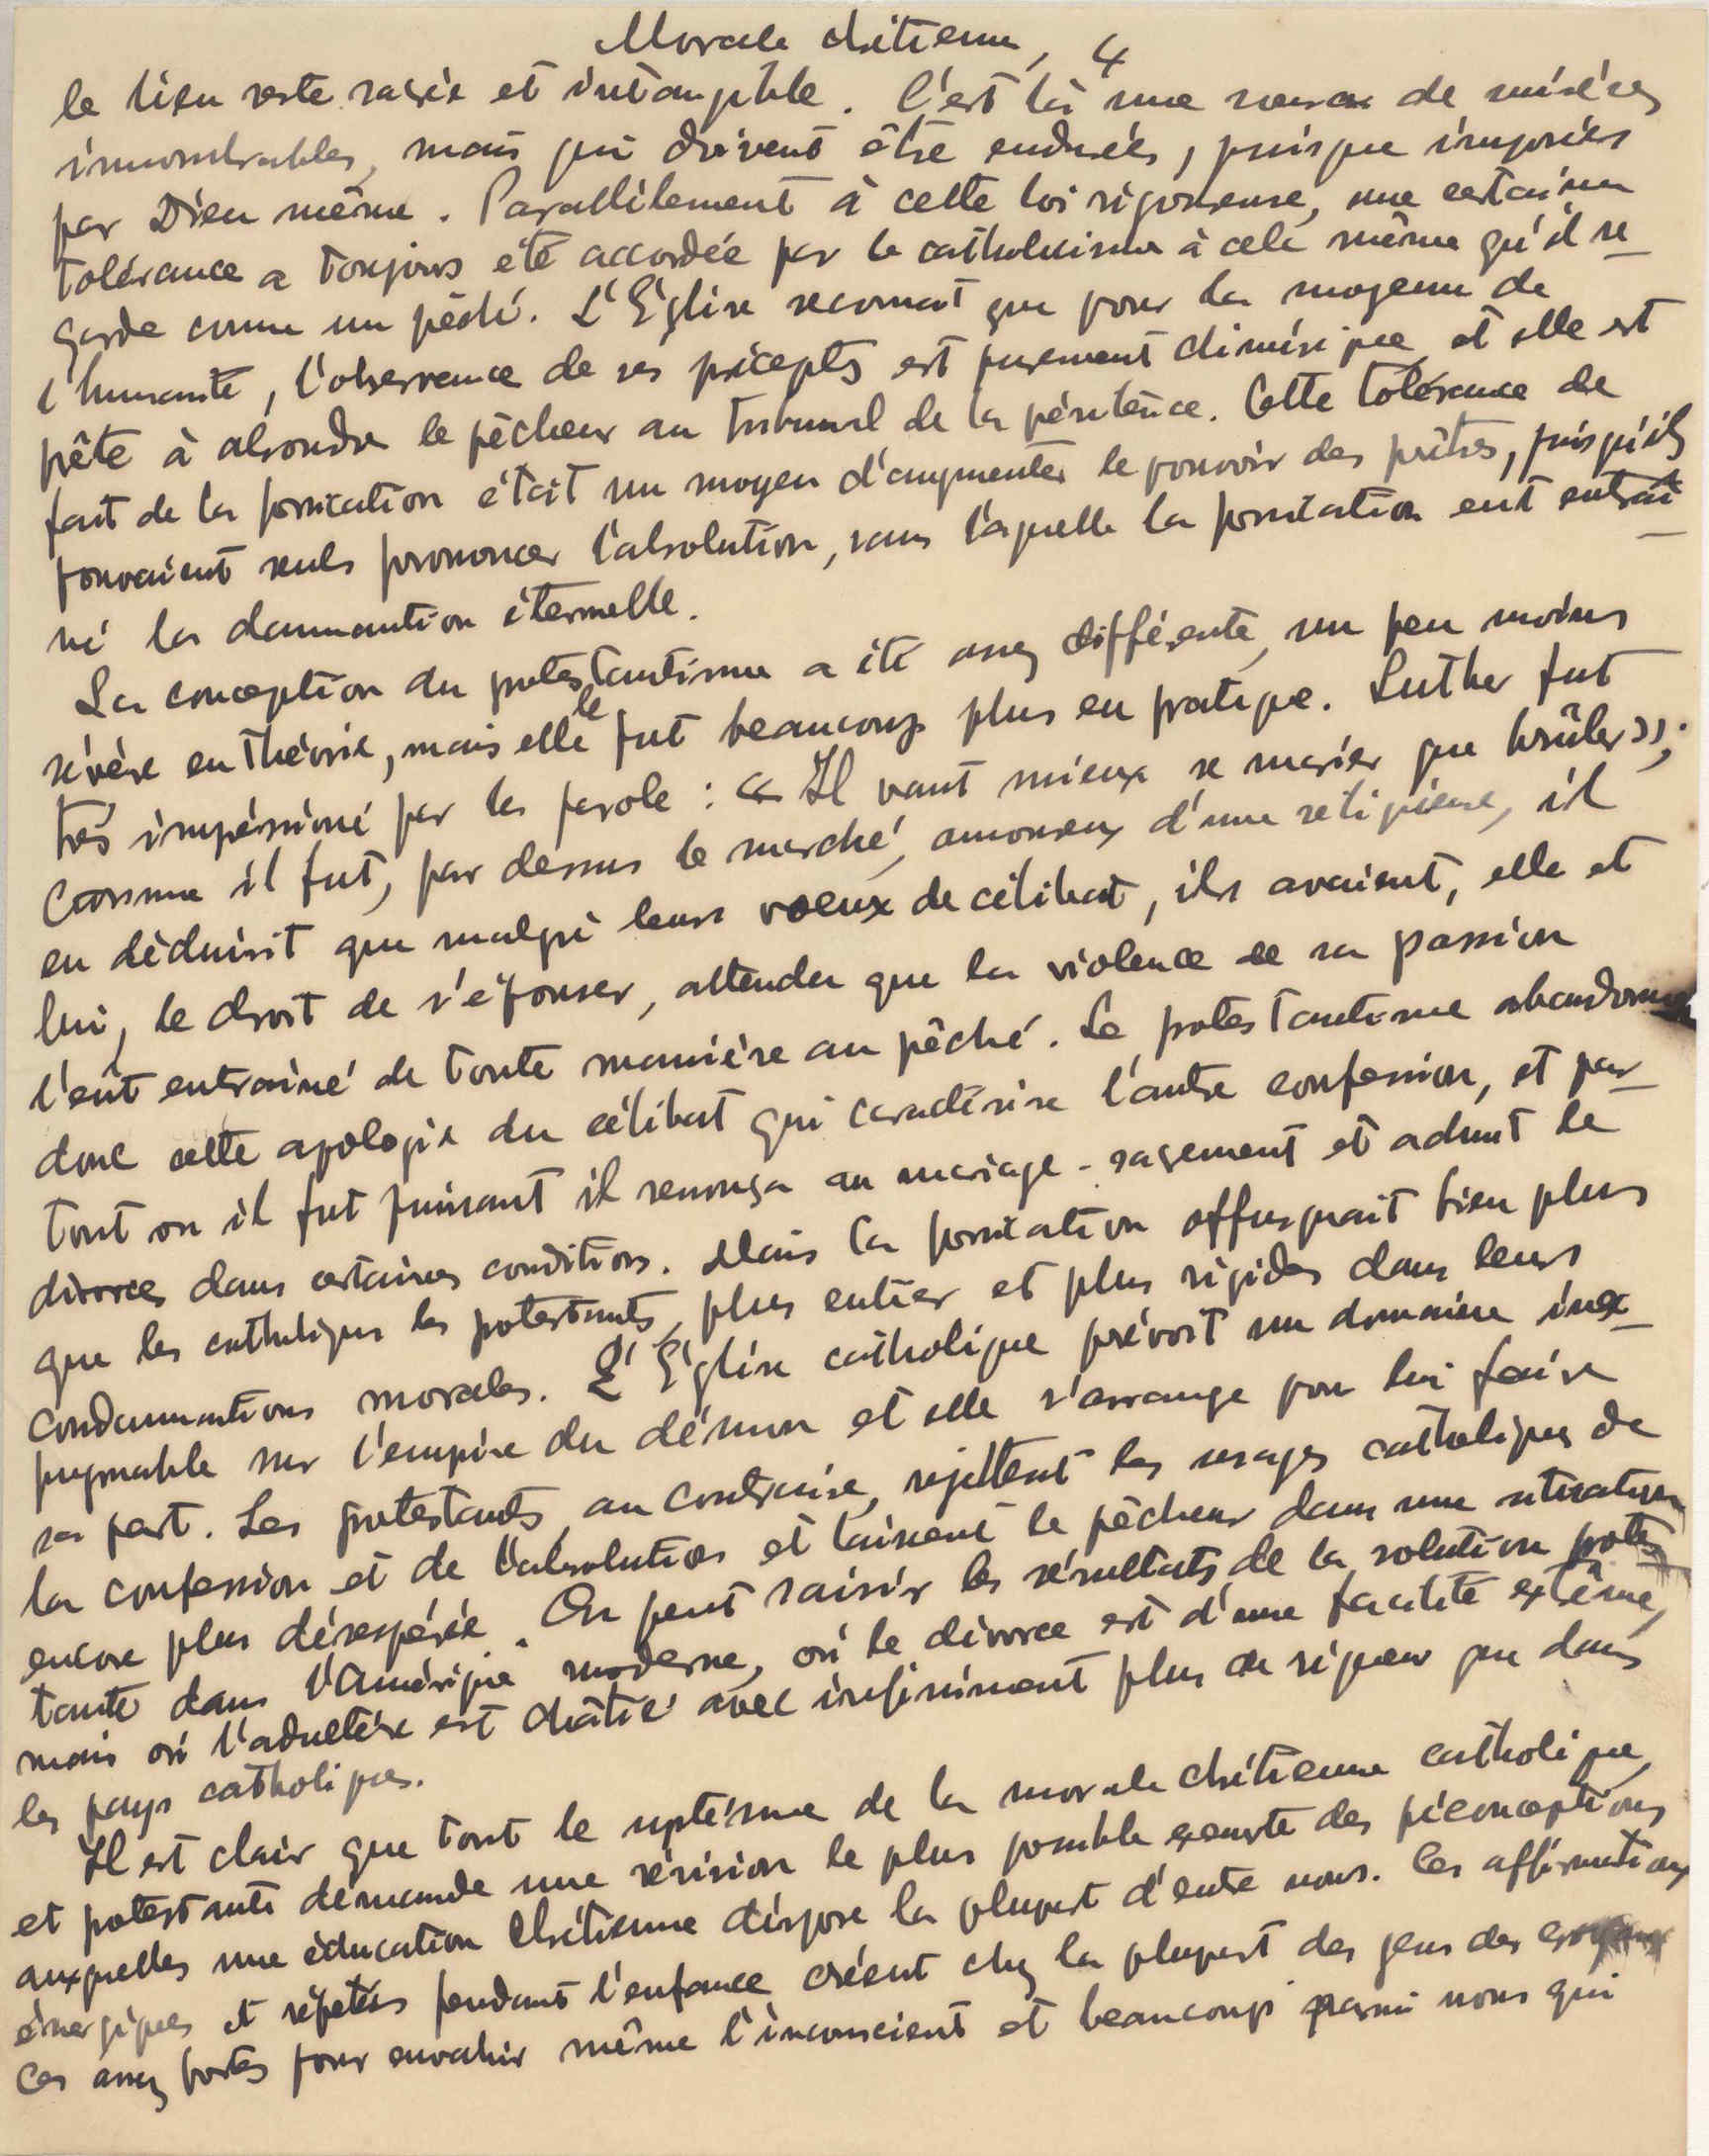 Morale chrétienne, 4
le lien reste sacré et intangible. C'est là une source de misères
innombrables, mais qui doivent être endurées, puisque imposées
par Dieu même. Parallèlement à cette loi rigoureuse, une certaine
tolérance a toujours été accordée par le catholicisme à cela même qu'il re-
garde comme un péché. L'Eglise reconnait que pour la moyenne de
l'humanité, l'observance de ses préceptes est purement chimérique et elle est
prête à absoudre le pécheur au tribunal de la pénitence. Cette tolérance de
fait de la fornication était un moyen d'augmenter le pouvoir des prêtres, puisqu'ils
pouvaient seuls prononcer l'absolution, sans laquelle la fornication eut entraî-
né la damnation éternelle.
La conception du protestantisme a été assez différente, un peu moins
sévère en théorie, mais elle le fut beaucoup plus en pratique. Luther fut
très impressionné par la parole : « Il vaut mieux se marier que brûler »;
comme il fut, par dessus le marché, amoureux d'une religieuse, il
en déduisit que malgré leurs voeux de célibat, ils avaient, elle et
lui, le droit de s'épouser, attendu que la violence de sa passion
l'eût entrainé de toute manière au péché. Le protestantisme abandonna
donc cette apologie du célibat qui caractérise l'autre confession, et par-
tout où il fut puissant il renonça au mariage-sacrement et admit le
divorce dans certaines conditions. Mais la fornication offusquait bien plus
que les catholiques les protestants, plus entier et plus rigides dans leurs
condamnations morales. L'Eglise catholique prévoit un domaine inex-
pugnable sur l'empire du démon et elle s'arrange pour lui faire
sa part. Les protestants, au contraire, rejettent les usages catholiques de
la confession et de l'absolution et laissent le pécheur dans une situation
encore plus désespérée. On peut saisir les résultats de la solution protes
tante dans l'Amérique moderne, où le divorce est d'une facilité extrême,
mais où l'adultère est châtié avec infiniment plus de rigueur que dans
les pays catholiques.
Il est clair que tout le système de la morale chrétienne catholique,
et protestante demande une révision le plus possible exempte des préconceptions
auxquelles une éducation chrétienne dispose la plupart d'entre nous. Les affirmations
énergiques et répétées pendant l'enfance créent chez la plupart des gens des croyan
ces assez fortes pour envahir même l'inconscient et beaucoup parmi nous qui